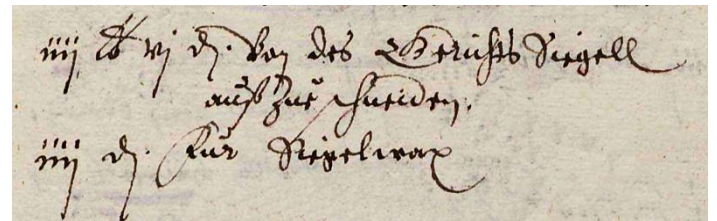 iiij lb vj d. Von des Gerichts Siegell
auß Zue schneiden.
iiij d. Fur Siegelwax